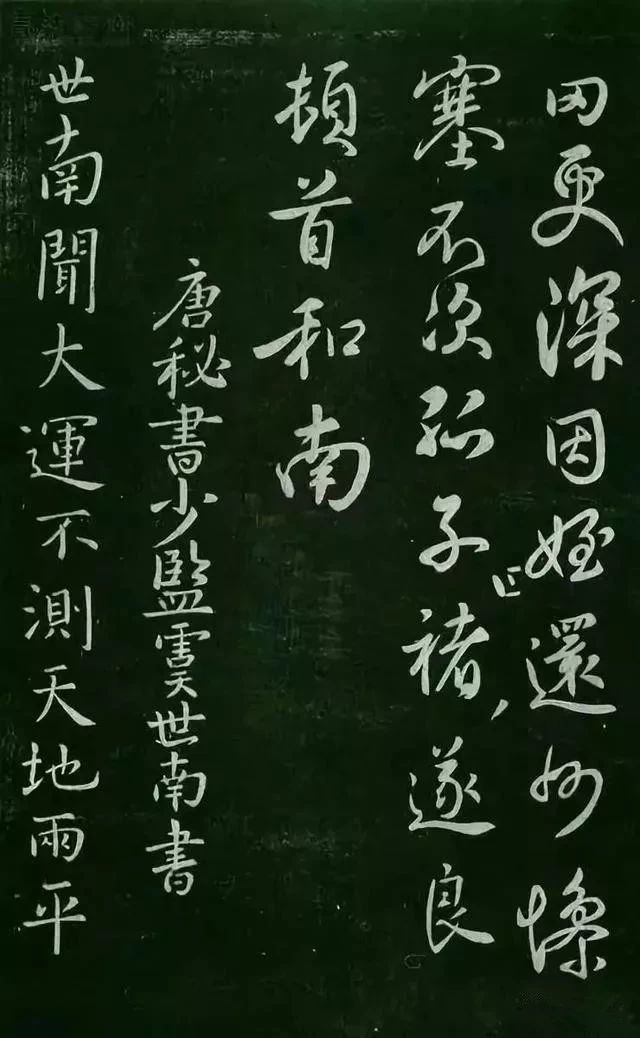 罔更深因姪還州慘
塞不次孤子褚遂良
頓首和南
唐秘書少監虞世南書
世南聞大運不測天地兩平